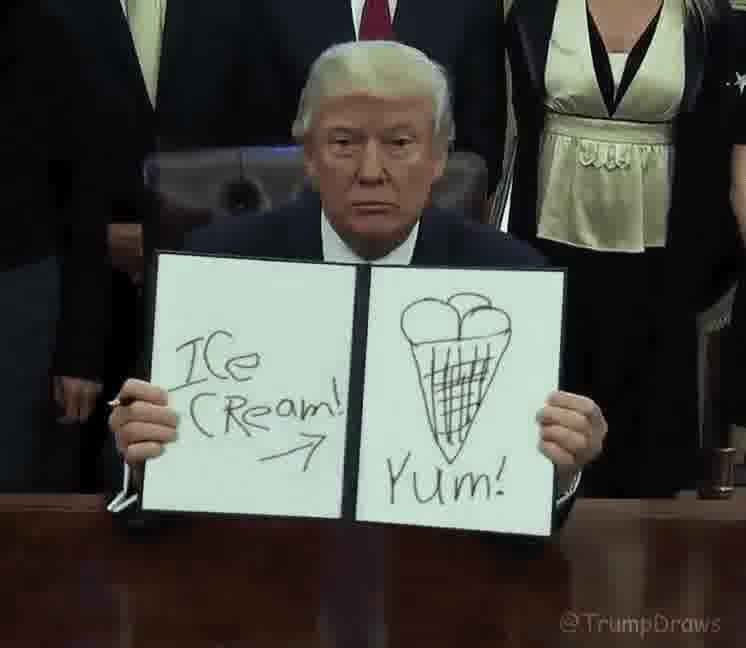 ICe
CReam!
Yum!
@TrumpDraws